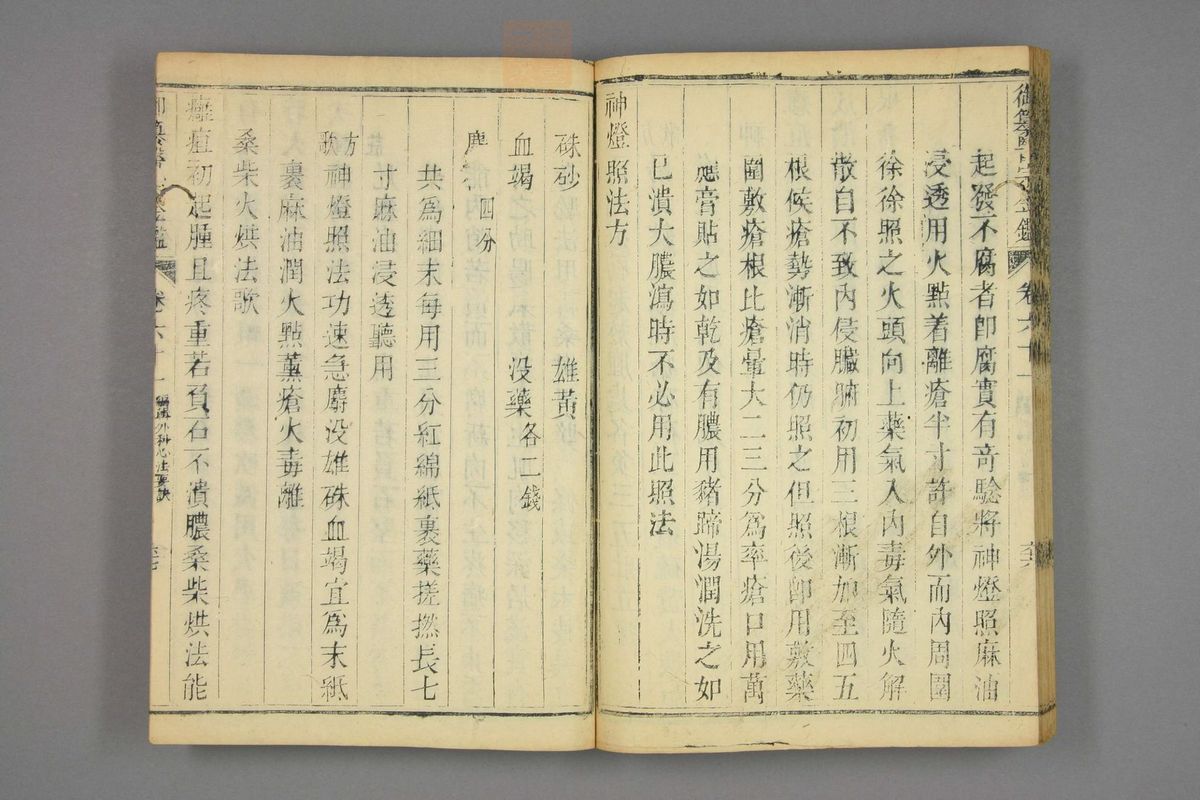 御纂醫宗金鑑 卷六十一
起發不腐者卽腐實有竒騐將神燈照麻油
浸透用火點着離瘡半寸許自外而內周圍
徐徐照之火頭向上藥氣入內毒氣隨火解
散自不致內侵臟腑初用三根漸加至四五
根候瘡勢漸消時仍照之但照後卽用敷藥
圍敷瘡根比瘡暈大二三分爲率瘡口用萬
應膏貼之如乾及有膿用豬蹄湯潤洗之如
已潰大膿瀉時不必用此照法
神燈照法方
硃砂 雄黃
血竭 没藥各二錢
麝 四分
共爲細末每用三分紅綿紙裹藥搓撚長七
寸麻油浸透聽用
方歌 神燈照法功速急麝没雄硃血竭宜爲末紙
裹麻油潤火點薰瘡火毒離
桑柴火烘法歌
癰疽初起腫且疼重若負石不潰膿桑柴烘法能
御纂醫宗金鑑 卷六十一 編輯外科心法要訣